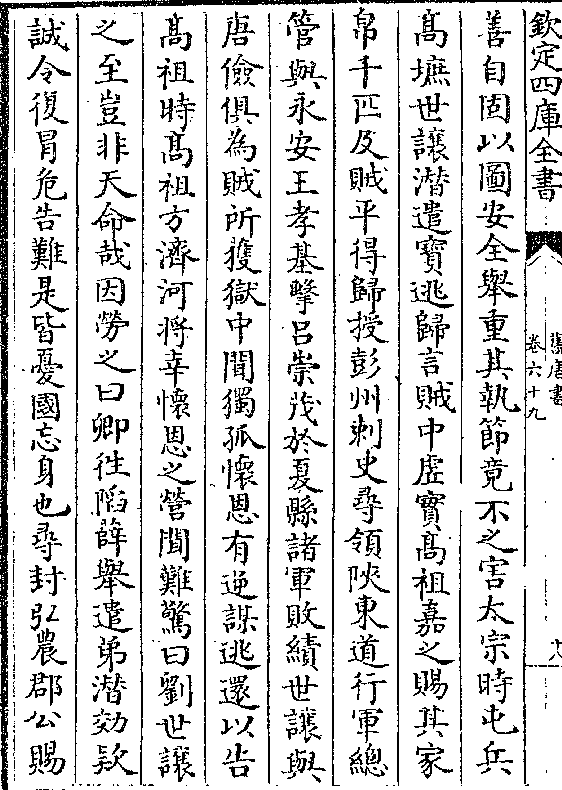 欽定四庫全書
舊唐書
卷六十九
善自固以圖安全舉重其執節竟不之害太宗時屯兵
髙墌世讓潜遣寳逃歸言賊中虛實髙祖嘉之賜其家
帛千匹及賊平得歸授彭州刺史尋領陜東道行軍總
管與永安王孝基擊吕崇茂於夏縣諸軍敗績世讓與
唐儉俱為賊所獲獄中聞獨孤懷恩有逆謀逃還以告
髙祖時髙祖方濟河將幸懷恩之營聞難驚曰劉世讓
之至豈非天命哉因勞之曰卿往陷薛舉遣弟潜効欵
誠今復冒危告難是皆憂國忘身也尋封弘農郡公賜